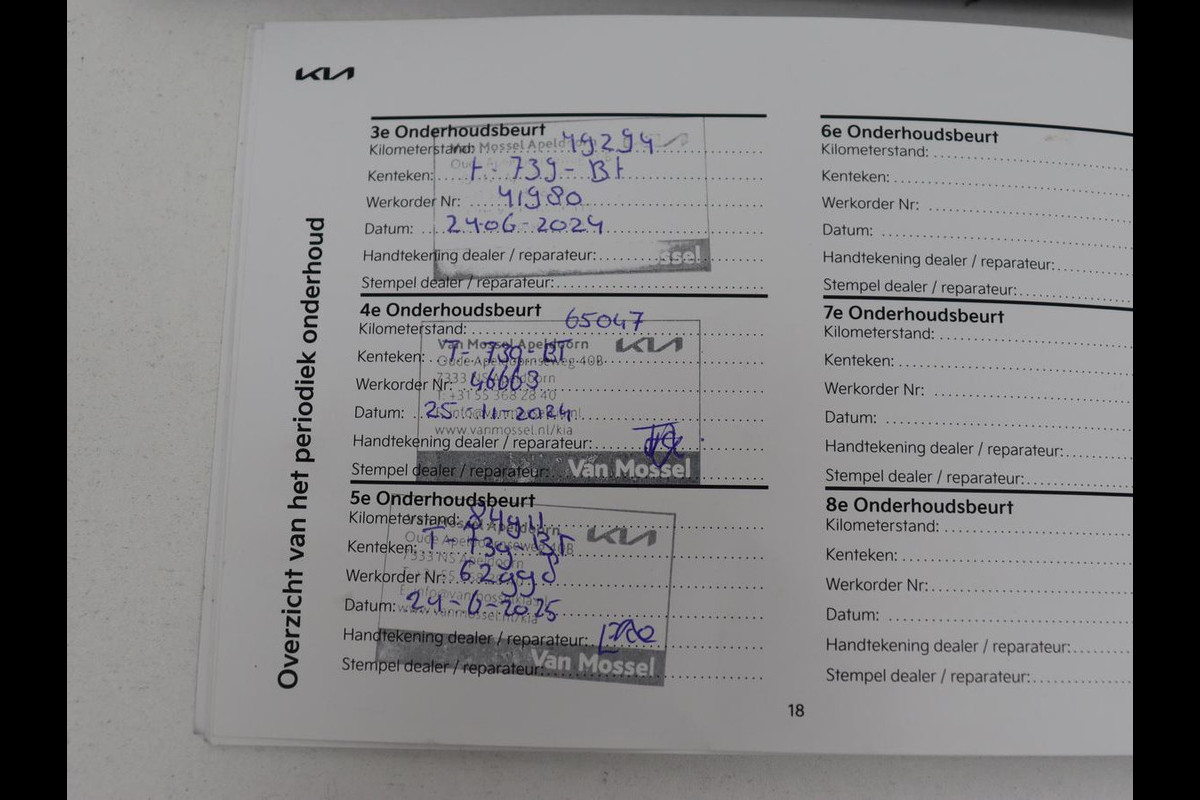 KIA
Overzicht van het periodiek onderhoud
3e Onderhoudsbeurt
Kilometerstand: 49294
Kenteken: T-739-BT
Werkorder Nr: 41980
Datum: 24-06-2024
Handtekening dealer / reparateur:
Stempel dealer / reparateur:
Van Mossel Apeldoorn
ssel
4e Onderhoudsbeurt
Kilometerstand: 65047
Kenteken: T-739-BT
Werkorder Nr: 46663
Datum: 25-11-2024
Handtekening dealer / reparateur:
Stempel dealer / reparateur:
Van Mossel Apeldoorn
KIA
Oude Apeldoornseweg 40B
7333 NS Apeldoorn
T: +31 55 368 28 40
www.vanmossel.nl/kia
Van Mossel
5e Onderhoudsbeurt
Kilometerstand: 84911
Kenteken: T-739-BT
Werkorder Nr: 62998
Datum: 24-6-2025
Handtekening dealer / reparateur:
Stempel dealer / reparateur:
KIA
Apeldoorn
7333 NS Apeldoorn
www.vanmossel.nl/kia
Van Mossel
6e Onderhoudsbeurt
Kilometerstand:
Kenteken:
Werkorder Nr:
Datum:
Handtekening dealer / reparateur:
Stempel dealer / reparateur:
7e Onderhoudsbeurt
Kilometerstand:
Kenteken:
Werkorder Nr:
Datum:
Handtekening dealer / reparateur:
Stempel dealer / reparateur:
8e Onderhoudsbeurt
Kilometerstand:
Kenteken:
Werkorder Nr:
Datum:
Handtekening dealer / reparateur:
Stempel dealer / reparateur:
18